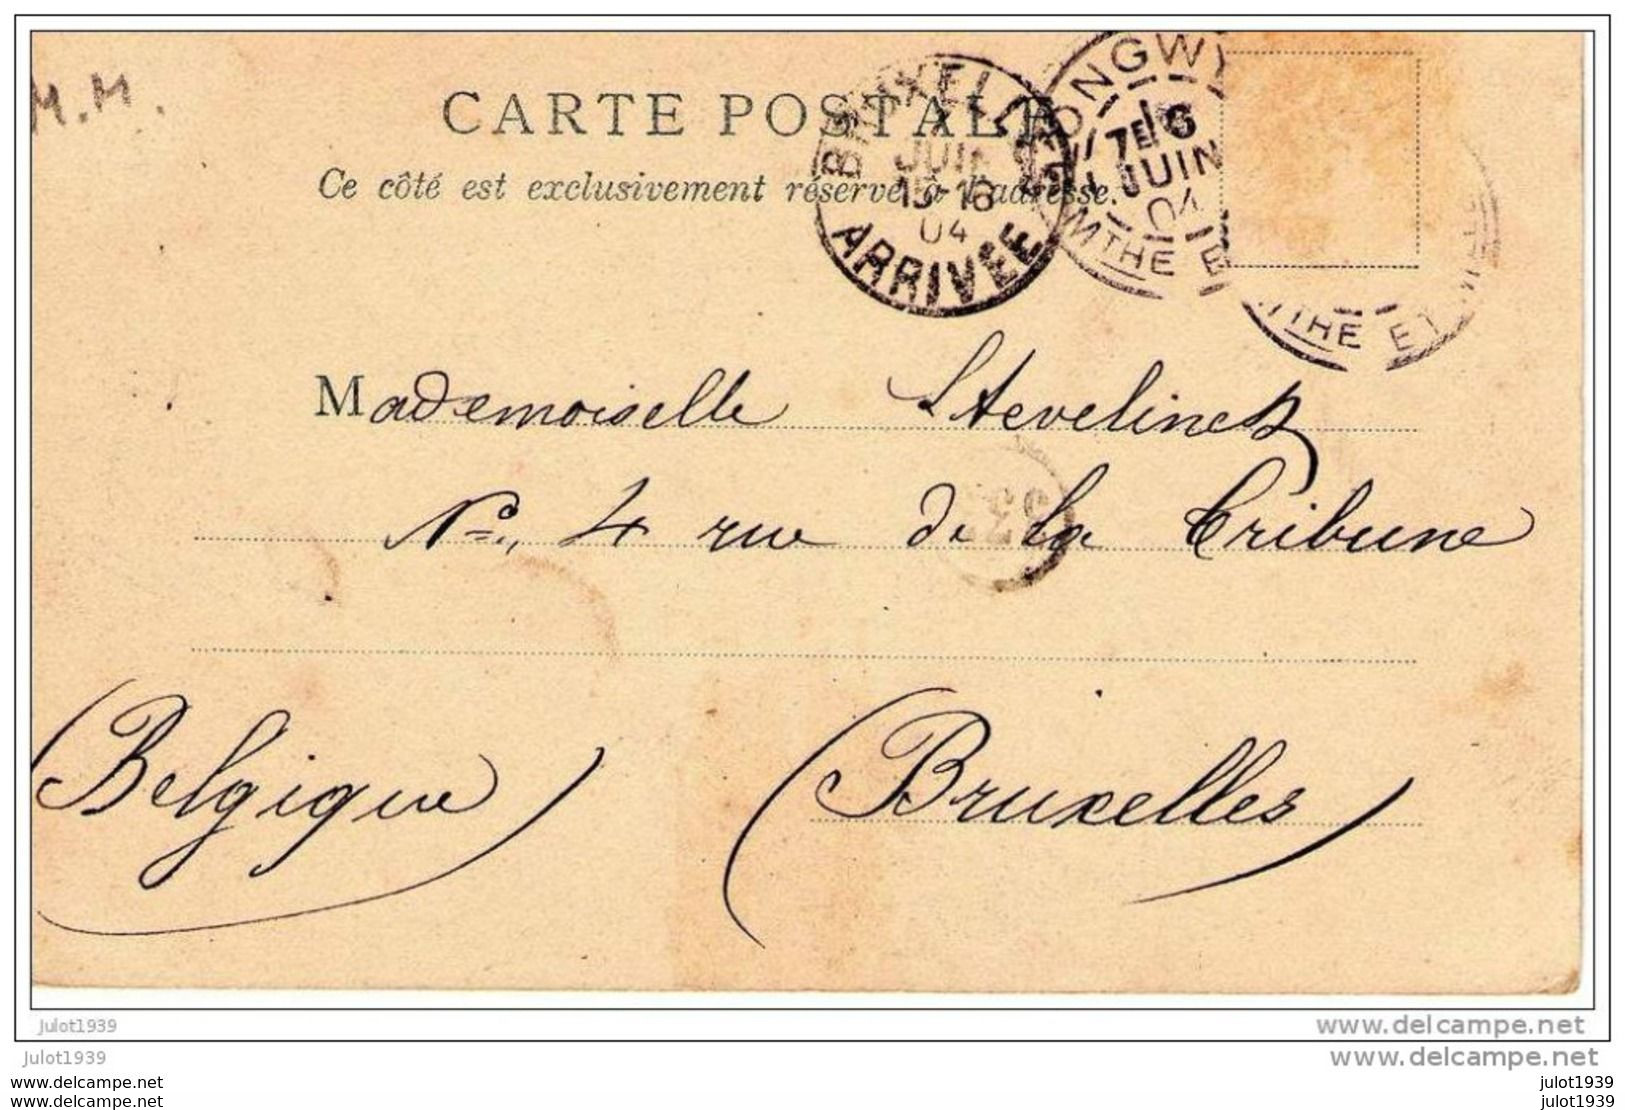 M.M.
CARTE POSTALE
Ce côté est exclusivement réservé à l'adresse.
BRUXELLES
JUIN
15-16
04
ARRIVÉE
LONGWY
7E 16
JUIN
04
MTHE E
THE ET
Mademoiselle Stevelinck
No. 4 rue de la Tribune
(Belgique)
(Bruxelles)
julot1939
www.delcampe.net
julot1939
www.delcampe.net
www.delcampe.com
julot1939
www.delcampe.com
julot1939